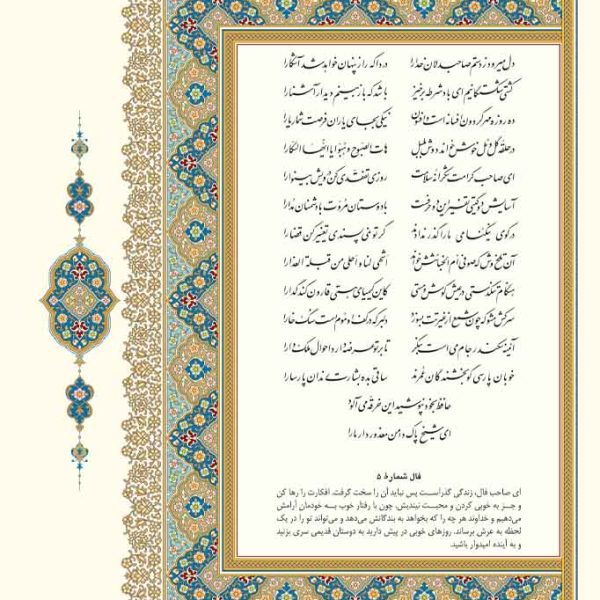 دل میرود ز دستم صاحبدلان خدا را دردا که راز پنهان خواهد شد آشکارا
کشتی شکستگانیم ای باد شرطه برخیز باشد که باز بینیم دیدار آشنا را
ده روزه مهر گردون افسانه است و افسون نیکی بجای یاران فرصت شمار یارا
در حلقه گل و مل خوش خواند دوش بلبل هات الصبوح هبوا یا ایها السکارا
ای صاحب کرامت شکرانه سلامت روزی تفقدی کن درویش بینوا را
آسایش دو گیتی تفسیر این دو حرفست با دوستان مروت با دشمنان مدارا
در کوی نیکنامی ما را گذر ندادند گر تو نمی پسندی تغییر کن قضا را
آن تلخ وش که صوفی ام الخبائثش خواند اشهی لنا و احلی من قبلة العذارا
هنگام تنگدستی در عیش کوش و مستی کاین کیمیای هستی قارون کند گدا را
سرکش مشو که چون شمع از غیرتت بسوزد دلبر که در کف او موم است سنگ خارا
آئینه سکندر جام می است بنگر تا بر تو عرضه دارد احوال ملک دارا
خوبان پارسی گو بخشندگان عمرند ساقی بده بشارت رندان پارسا را
حافظ بخود نپوشید این خرقه می آلود
ای شیخ پاک دامن معذور دار ما را
فال شمارهٔ ۵
ای صاحب فال، زندگی گذراست پس نباید آن را سخت گرفت. افکارت را رها کن
و جز به خوبی کردن و محبت نیندیش، چون با رفتار خوب به خودمان آرامش
می‌دهیم و خداوند هر چه را که بخواهد به بندگانش می‌دهد و می‌تواند تو را در یک
لحظه به عرش برساند. روزهای خوبی در پیش دارید به دوستان قدیمی سری بزنید
و به آینده امیدوار باشید.